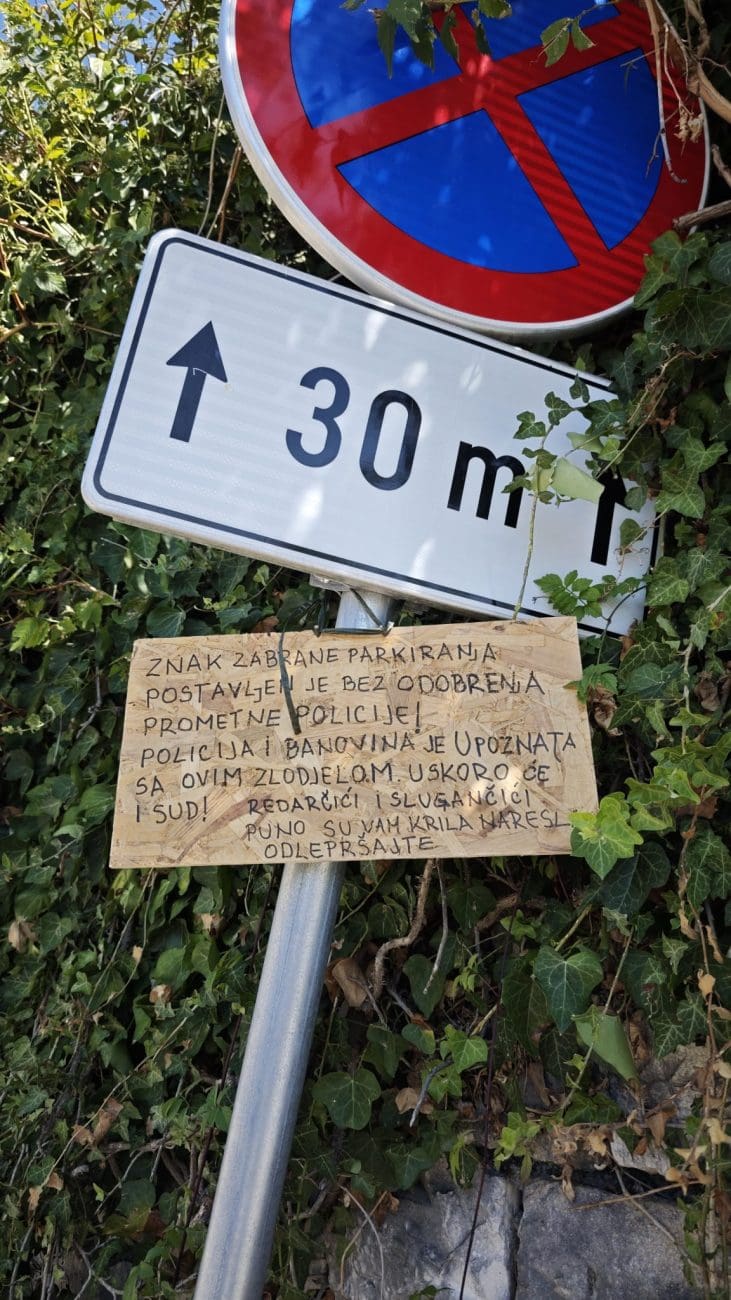 30 m
ZNAK ZABRANE PARKIRANJA
POSTAVLJEN JE BEZ ODOBRENJA
PROMETNE POLICIJE!
POLICIJA I BANOVINA JE UPOZNATA
SA OVIM ZLODJELOM. USKORO ĆE
I SUD! REDARČIĆI I SLUGANČIĆI
PUNO SU VAM KRILA NARESL
ODLEPRŠAJTE